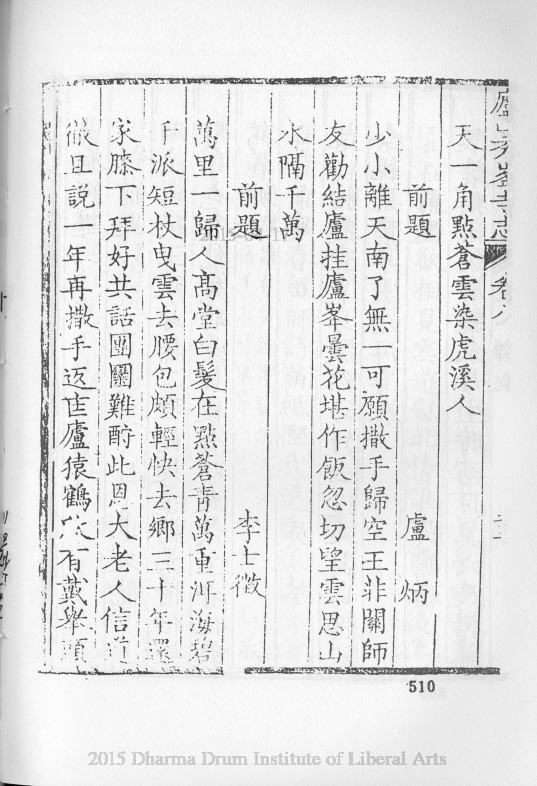 天一角點蒼雲染虎溪人
前題 盧炳
少小離天南了無一可願撒手歸空王非關師
友勸結廬挂廬峯曇花堪作飯忽切望雲思山
水隔千萬
前題 李士徵
萬里一歸人高堂白髮在點蒼青萬重洱海碧
千派短杖曳雲去腰包頗輕快去鄉三十年還
家膝下拜好共話團圞難酧此恩大老人信道
徹且説一年再撒手返匡廬猿鶴
有戴舉頭
卷八
510
2015 Dharma Drum Institute of Liberal Arts